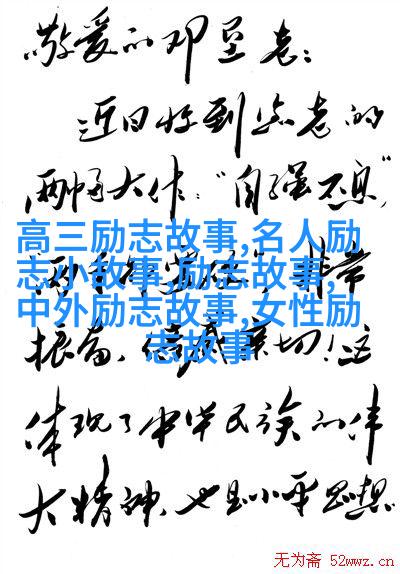 敬爱的邓垦老：
近日收到您老的
两幅大作："自强不息"
高三励志故事,名人励
志小故事,励志故事,
中外励志故事,女性励
志故事
非常
振奋、倍感亲切！这
体现了中华民族的伟
大精神，也是小平思想
无为斋 52wwz.cn